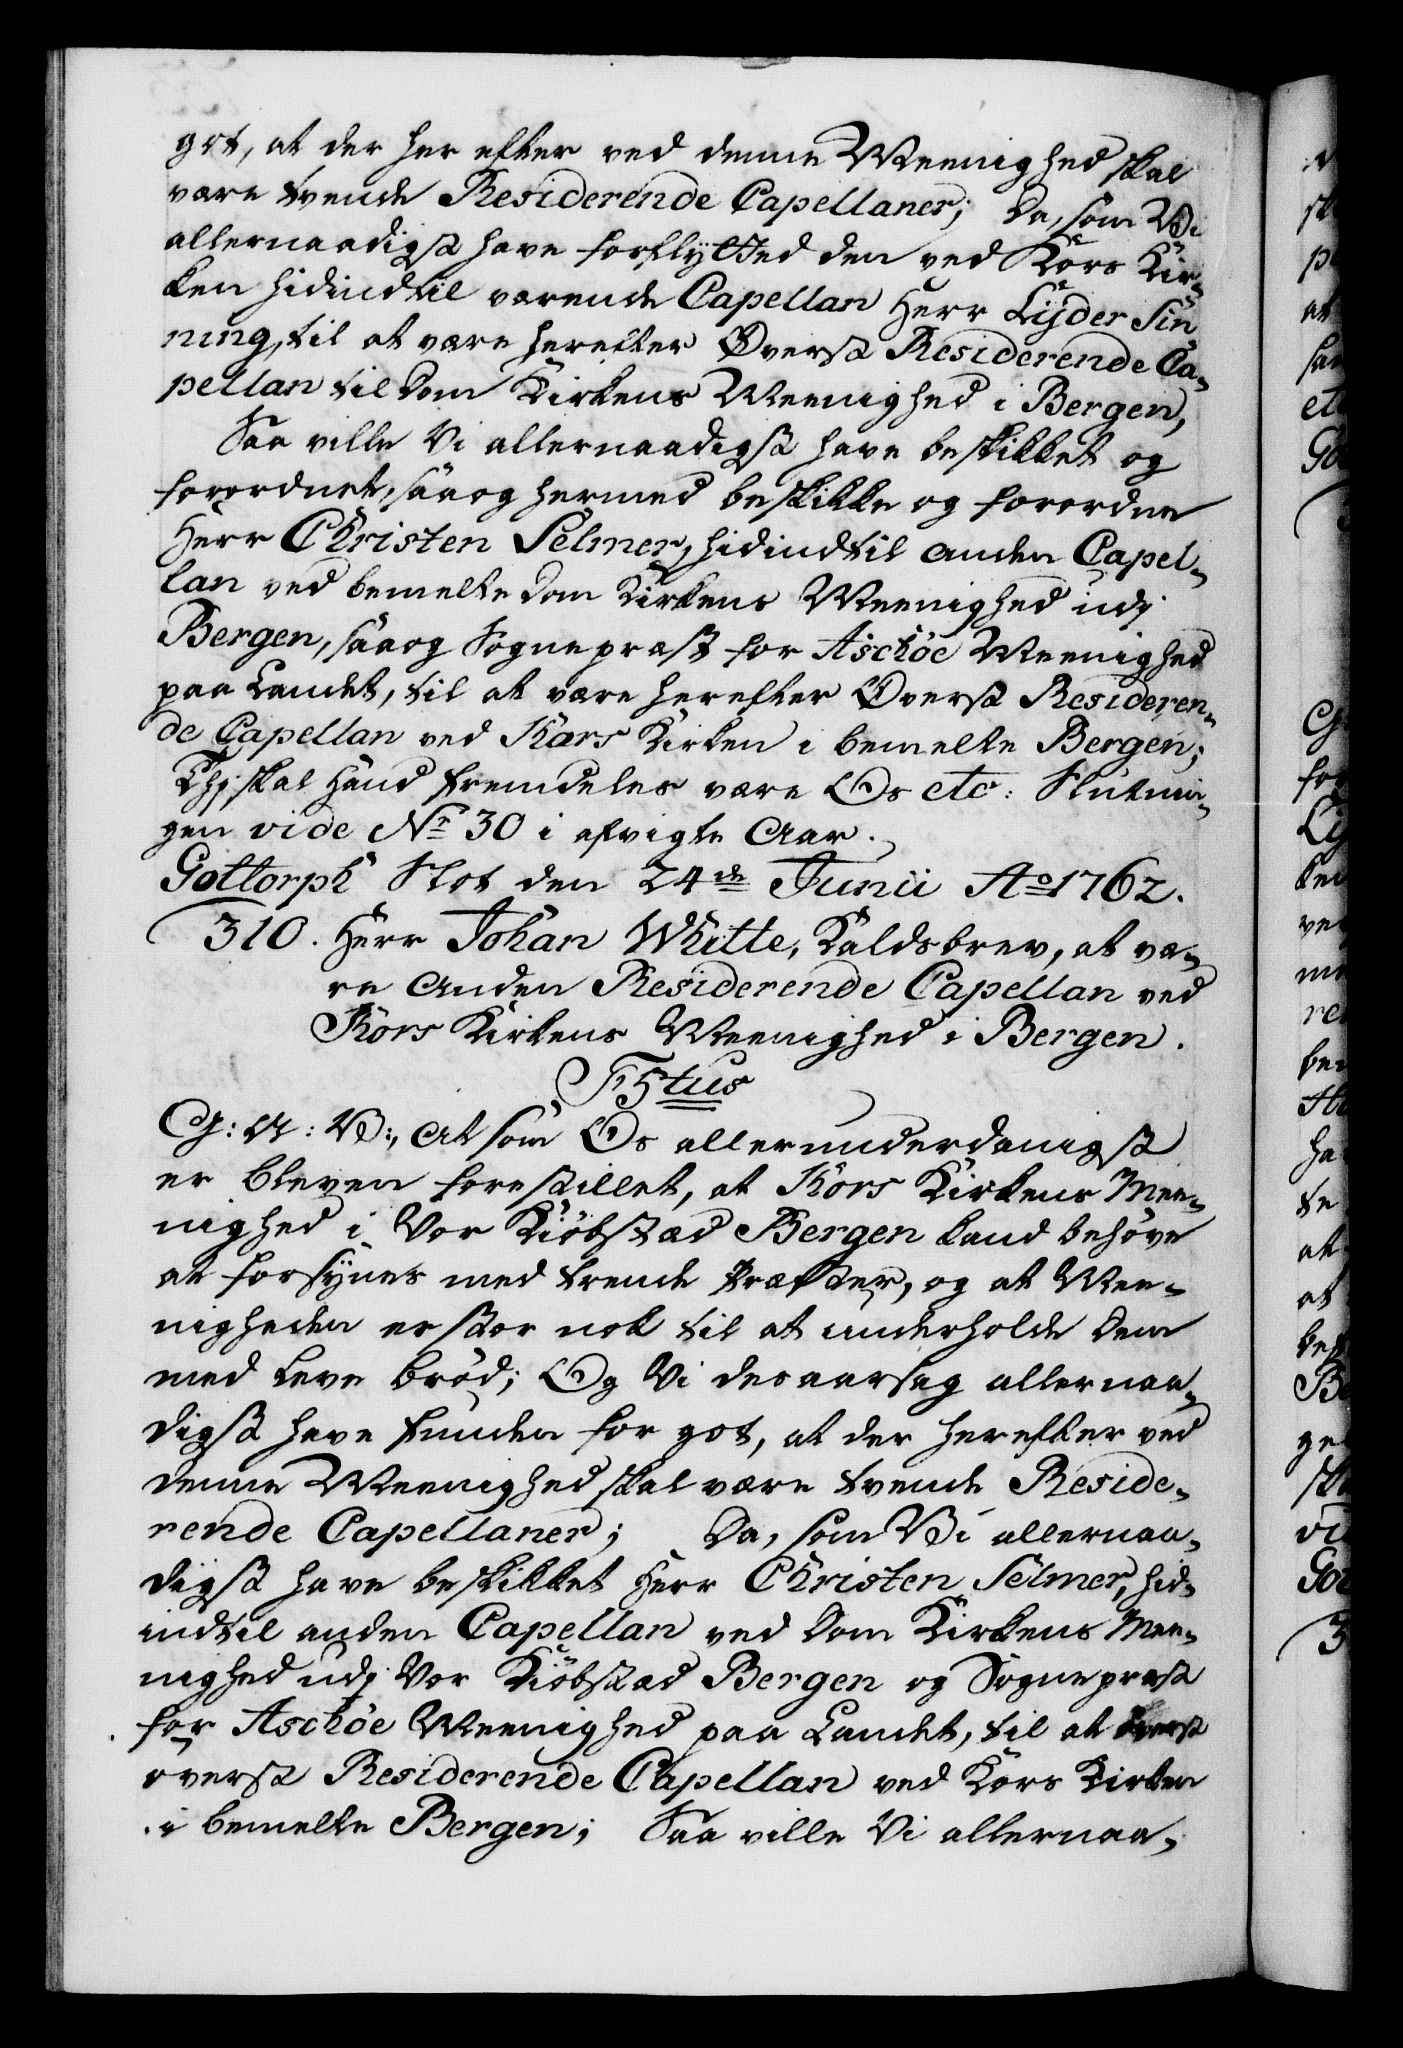 got, at der her efter ved denne Meenighed skal
være tvende Residerende Capellaner; Da, som Vi
allernaadigst have forflytted den ved Kors Kir-
ken hidindtil værende Capellan Herr Lijder Sin
ning, til at være herefter Øverst Residerende Ca-
pellan til Dom Kirkens Meenighed i Bergen,
Saa ville Vi allernaadigst have beskikket og
forordnet, saa og hermed beskikke og forordne
Herr Christen Selmer, hidindtil anden Capel-
lan ved bemelte Dom Kirkens Meenighed udj
Bergen, saa og Sognepræst for Aschöe Meenighed
paa Landet, til at være herefter Øverst Resideren-
de Capellan ved Kors Kirken i bemelte Bergen;
Thj skal Hand fremdeles være Os etc: Slutnin-
gen vide Nr 30 i afvigte Aar.
Gottorph Slot den 24de Junii Ao 1762.
310. Herr Johan Whitte, Kaldsbrev, at væ-
re Anden Residerende Capellan ved
Kors Kirkens Meenighed i Bergen.
F5tus
G: A: V:, At som Os allerunderdanigst
er bleven forestillet, at Kors Kirkens Mee-
nighed i Vor Kiöbstæd Bergen kand behöve
at forsÿnes med trende Præster, og at Mee-
nigheden er stor nok til at underholde dem
med leve bröd; Og Vi desaarsag allernaa-
digst have funden for got, at der herefter ved
denne Meenighed skal være tvende Reside-
rende Capellaner; Da, som Vi allernaa-
digst have beskikket Herr Christen Selmer, hid-
indtil anden Capellan ved Dom Kirkens Mee-
nighed udj Vor Kiöbstæd Bergen og Sognepræst
for Aschöe Meenighed paa Landet, til at
øverst Residerende Capellan ved Kors Kirken
i bemelte Bergen; Saa ville Vi allernaa-